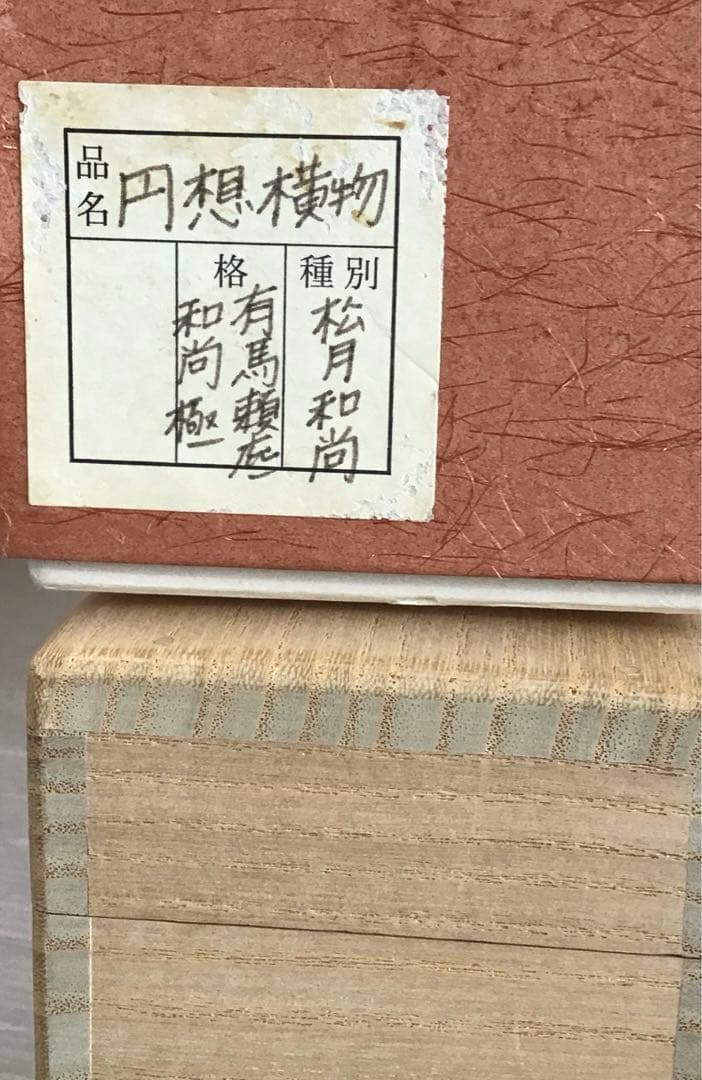 品名 円想横物
種別
松月和尚
格
有馬頼底
和尚極